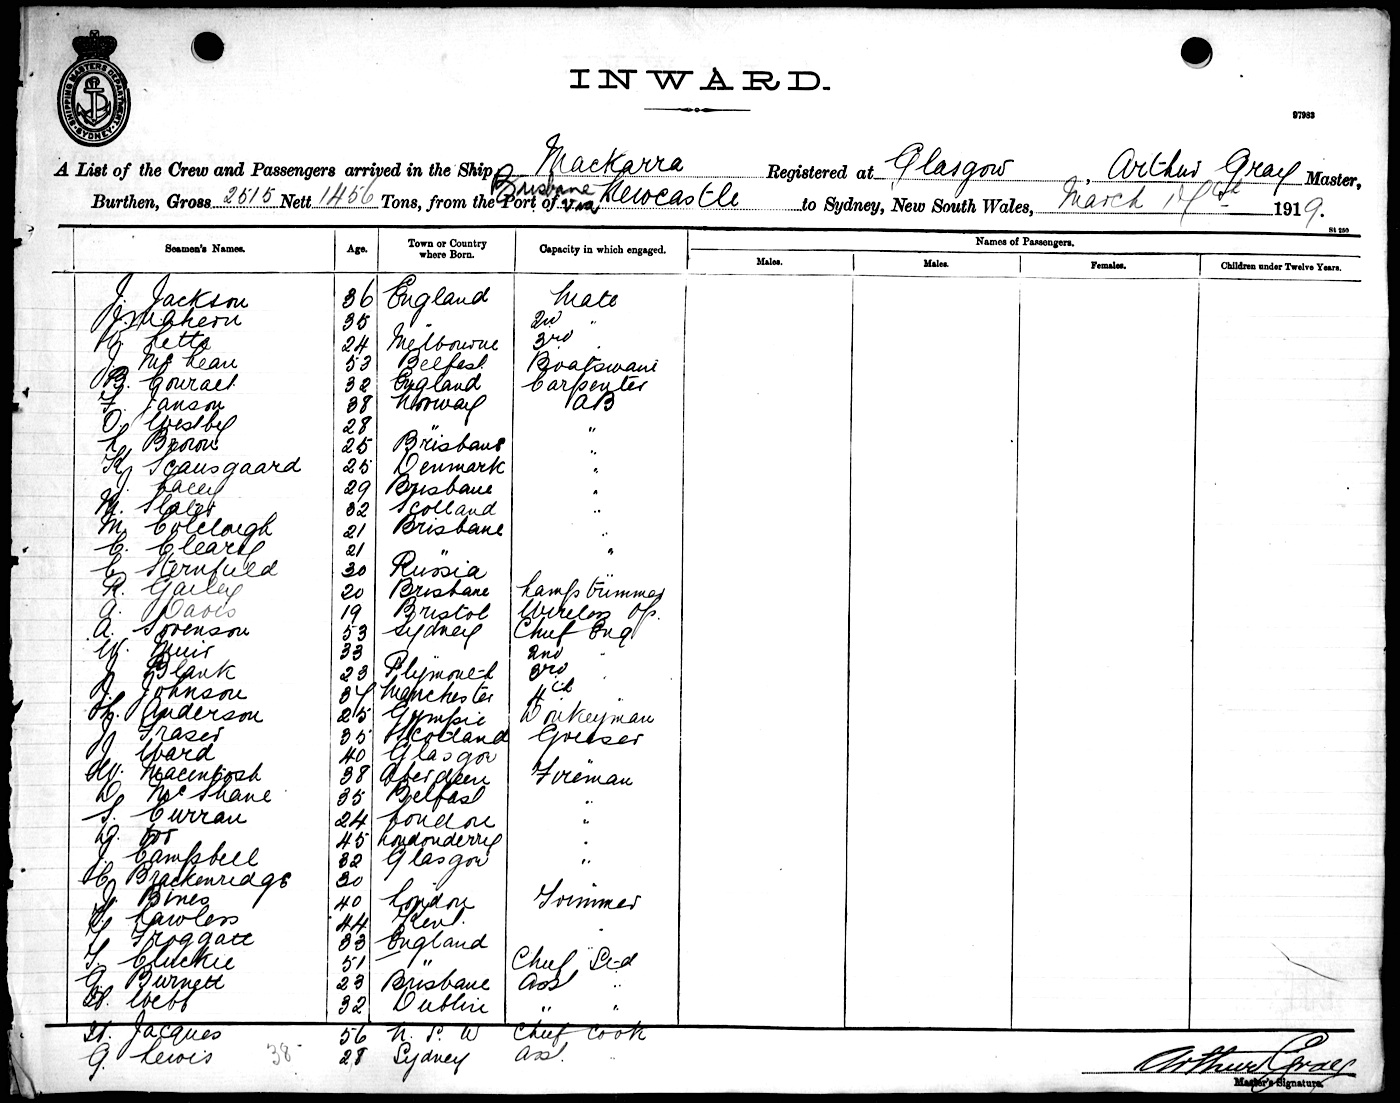 SHIPPING MASTERS DEPARTMENT SYDNEY
INWARD.
97983
A List of the Crew and Passengers arrived in the Ship Mackarra Registered at Glasgow, Arthur Gray Master,
Burthen, Gross 2515 Nett 1456 Tons, from the Port of Brisbane via Newcastle to Sydney, New South Wales, March 1919.
St 250
Seamen's Names. Age. Town or Country where Born. Capacity in which engaged. Names of Passengers.
Males. Males. Females. Children under Twelve Years.
J. Jackson 36 England Mate
Mahern 35 " 2nd "
Letts 24 Melbourne 3rd "
J. McLean 53 Belfast Boatswain
B. Couract 32 England Carpenter
F. Janson 38 Norway AB
O. Westby 28 " "
L. Brown 25 Brisbane "
K. Scausgaard 25 Denmark "
J. Lacey 29 Brisbane "
M. Slater 32 Scotland "
M. Colclough 21 Brisbane "
C. Cleary 21 " "
C. Sternfuld 30 Russia
R. Gailey 20 Brisbane Lamptrimmer
A. Davis 19 Bristol Wireless Op.
A. Sorenson 53 Sydney Chief Eng
W. Muir 33 " 2nd "
J. Blank 23 Plymouth 3rd "
Johnson 34 Manchester 4th "
Anderson 25 Gympie Donkeyman
J. Fraser 35 Scotland Greaser
J. Ward 40 Glasgow "
W. Macintosh 38 Aberdeen Fireman
D. McShane 35 Belfast "
S. Curran 24 London "
45 Londonderry "
J. Campbell 32 Glasgow "
C. Brackenridge 30 "
J. Bines 40 London Trimmer
Lawless 44 Kent "
Froggatt 33 England "
S. Cluckie 51 " Chief Std
G. Burnett 23 Brisbane Asst "
H. Webb 32 Dublin " "
H. Jacques 56 N. S. W Chief Cook
G. Lewis 38 28 Sydney Asst. "
Arthur Gray
Master's Signature.